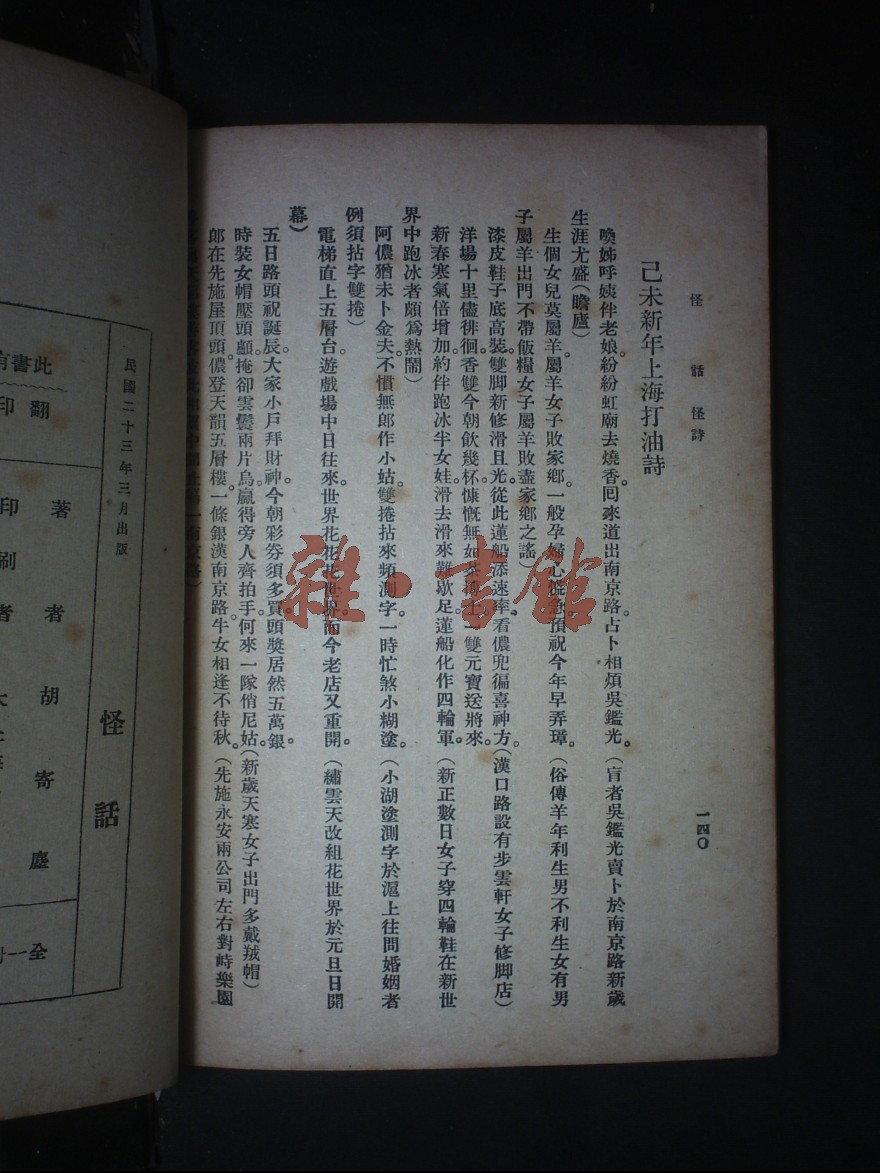 怪話怪詩
一四〇
己未新年上海打油詩
喚姊呼姨伴老娘。紛紛虹廟去燒香。囘來道出南京路。占卜相煩吳鑑光。(盲者吳鑑光賣卜於南京路新歲
生涯尤盛(瞻廬)
生個女兒莫屬羊。屬羊女子敗家鄉。一般孕婦心慌急。預祝今年早弄璋。(俗傳羊年利生男不利生女有男
子屬羊出門不帶飯糧女子屬羊敗盡家鄉之謠)
漆皮鞋子底高裝。雙脚新修滑且光。從此蓮船添速率。看儂兜徧喜神方。(漢口路設有步雲軒女子修脚店)
洋場十里儘徘徊。香雙今朝飲幾杯。慷慨無如茶博士。一雙元寶送將來。
新春寒氣倍增加。約伴跑冰半女娃。滑去滑來難歇足。蓮船化作四輪軍。(新正數日女子穿四輪鞋在新世
界中跑冰者頗爲熱鬧)
阿儂猶未卜金夫。不慣無郎作小姑。雙捲拈來頻測字。一時忙煞小糊塗。(小湖塗測字於滬上往問婚姻者
例須拈字雙捲)
電梯直上五層台。遊戲場中日往來。世界花花花世界。而今老店又重開。(繡雲天改組花世界於元旦日開
幕)
五日路頭祝誕辰。大家小戶拜財神。今朝彩券須多買。頭獎居然五萬銀。
時裝女帽壓頭顱。掩卻雲鬟兩片烏。贏得旁人齊拍手。何來一隊俏尼姑。(新歲天寒女子出門多戴羢帽)
郎在先施屋頂頭。儂登天韻五層樓。一條銀漢南京路。牛女相逢不待秋。(先施永安兩公司左右對峙樂園
民國二十三年三月出版
怪話
此書有
翻印
著者胡寄塵
印刷者
全一册
雜·書館